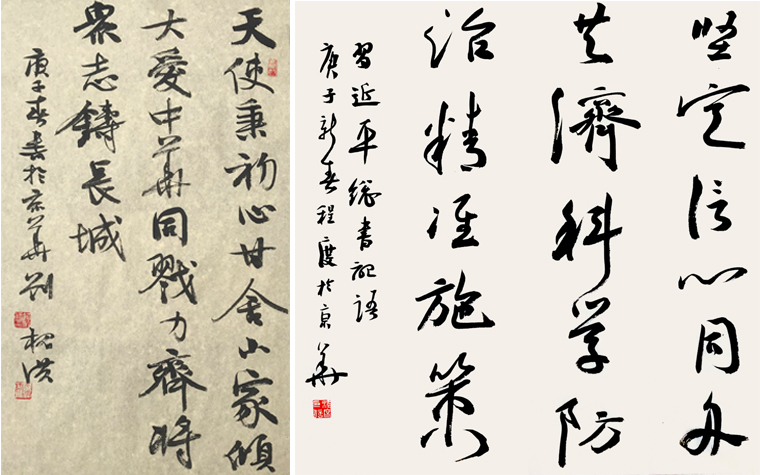 天使秉初心甘舍小家傾
大愛中華同戮力齊將
眾志鑄長城
庚子春書於京華劉
坚定信心同舟
共濟科学防
治精准施策
習近平總書記語
庚子新春程度於京華